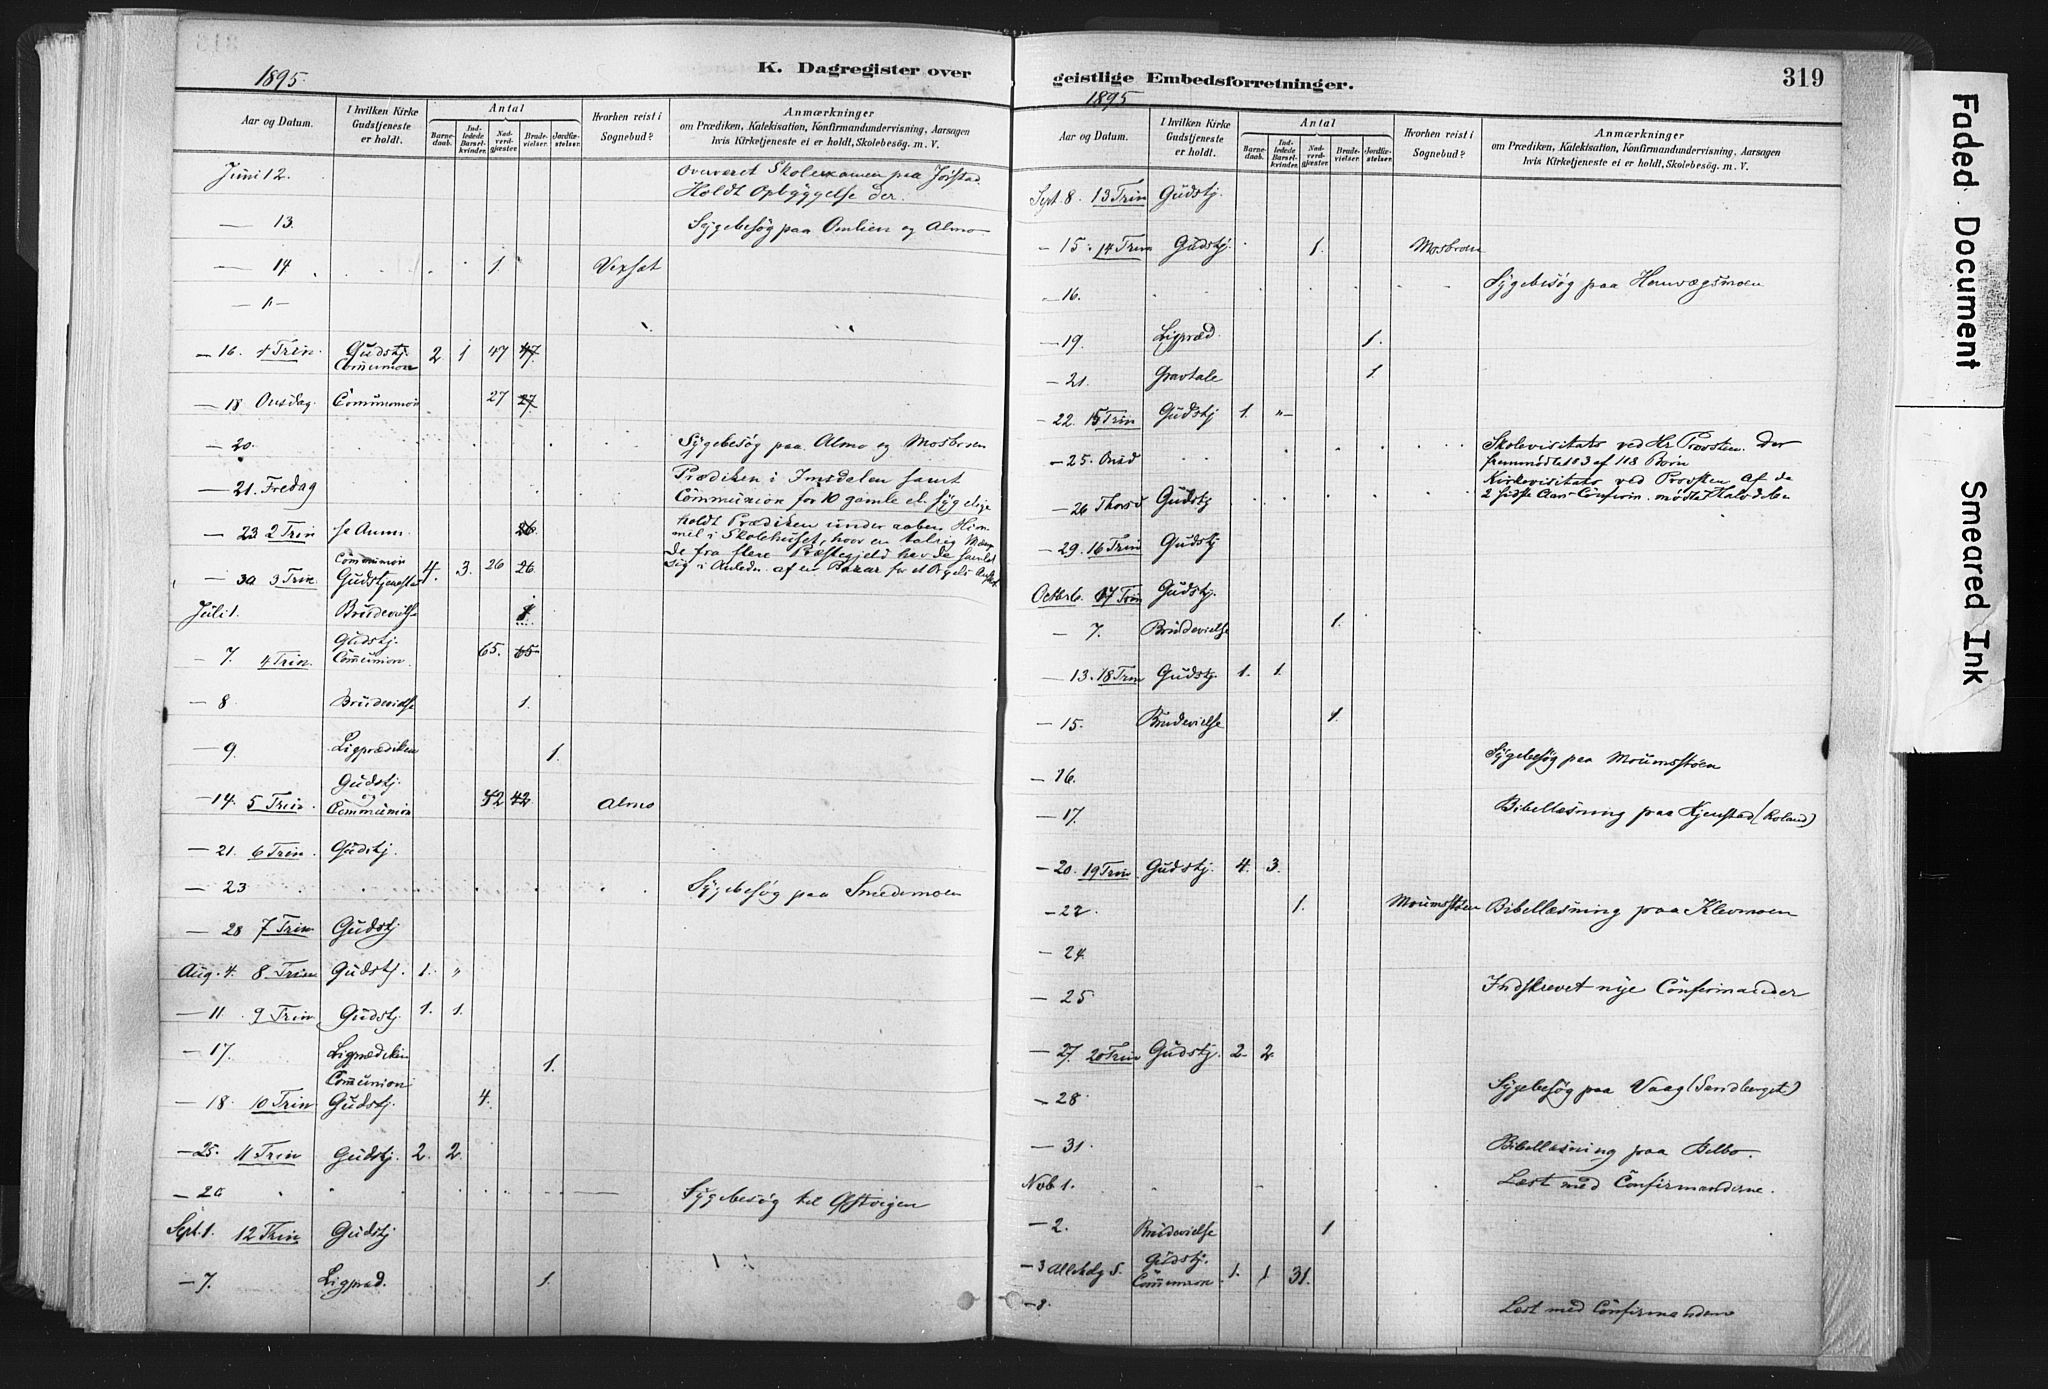 1895.
K. Dagregister over
Aar og Datum.
I hvilken Kirke Gudstjeneste er holdt.
Antal
Barnedaab.
Indledede Barselkvinder.
Nadverdgjæster.
Brudevielser.
Jordfæstelser.
Hvorhen reist i Sognebud?
Anmærkninger
om Prædiken, Katekisation, Konfirmandundervisning, Aarsagen
hvis Kirketjeneste ei er holdt, Skolebesøg. m. V.
Juni 12. overværet Skoleexamen paa Jørstad
Holdt Opbyggelse der.
— 13. Sygebesøg paa Omlien og Almo
— 14 1. Vexsæt
— " —
— 16. 4 Trin. Gudstj. Communion 2 1 47 47
— 18 Onsdag. Communion 27 27
— 20. Sygebesøg paa Almo og Mosbroen
— 21. Fredag Prædiken i Imsdalen samt
Communion for 10 gamle el. sygelige
— 23 2 Trin se Anm. 26 holdt Prædiken under aaben Him-
mel i Skolehuset, hvor en talrig Mæng
de fra flere Præstegjeld havde samlet
sig i Anledn. af en Bazar for et Orgel
— 30 3 Trin. Communion Gudstjeneste 4. 3. 26 26.
Juli 1. Brudevielse 1
— 7. 4 Trin. Gudstj. Communion. 65. 65
— 8 Brudevielse 1.
— 9 Ligprædiken 1.
— 14. 5 Trin. Gudstj. og Communion 42 42 Almo
— 21. 6 Trin. Gudstj.
— 23 Sygebesøg paa Smedemoen
— 28 7 Trin. Gudstj
Aug. 4. 8. Trin Gudstj. 1. "
— 11. 9 Trin Gudstj. 1. 1.
— 17. Ligprædiken 1.
— 18. 10 Trin Communion Gudstj. 4.
— 25. 11 Trin Gudstj. 2. 2.
— 26 Sygebesøg til
Sept. 1. 12 Trin Gudstj
— 7. Ligpræd. 1.
geistlige Embedsforretninger.
319
1895
Aar og Datum.
I hvilken Kirke Gudstjeneste er holdt.
Antal
Barnedaab.
Indledede Barselkvinder.
Nadverdgjæster.
Brudevielser.
Jordfæstelser.
Hvorhen reist i Sognebud?
Anmærkninger
om Prædiken, Katekisation, Konfirmandundervisning, Aarsagen
hvis Kirketjeneste ei er holdt, Skolebesøg. m. V.
Sept. 8. 13 Trin Gudstj.
— 15. 14 Trin Gudstj. 1. Mosbroen
— 16. Sygebesøg paa Hornvægsmoen
— 19. Ligpræd. 1.
— 21. Gravtale 1.
— 22. 15 Trin Gudstj 1. "
— 25. Onsd Skolevisitats ved Hr Provsten. Der
fremmødte 103 af 118 Børn
— 26 Thorsd Gudstj Kirkevisitats ved Provsten af de
2 sidste Aars Confirm. mødte Halvdelen
— 29. 16 Trin Gudstj
Octbr 6. 17 Trin Gudstj.
— 7. Brudevielse 1.
— 13. 18 Trin Gudstj. 1. 1.
— 15. Brudevielse 1.
— 16. Sygebesøg paa Moumsstøen
— 17. Bibellæsning paa Kjenstad (Roland)
— 20. 19 Trin Gudstj. 4. 3.
— 22. 1. Moumsstøen Bibellæsning paa Klevmoen
— 24.
— 25 Indskrevet nye Confirmander
— 27. 20 Trin Gudstj. 2. 2.
— 28 Sygebesøg paa Vaag (Sandberget)
— 31. Bibellæsning paa Belbo.
Nob 1. Læst med Confirmanderne.
— 2. Brudevielse 1
— 3 Allehelg S. Gudstj. Communion 1. 1 31.
— 8. Læst med Confirmanderne
Faded Document
Smeared Ink